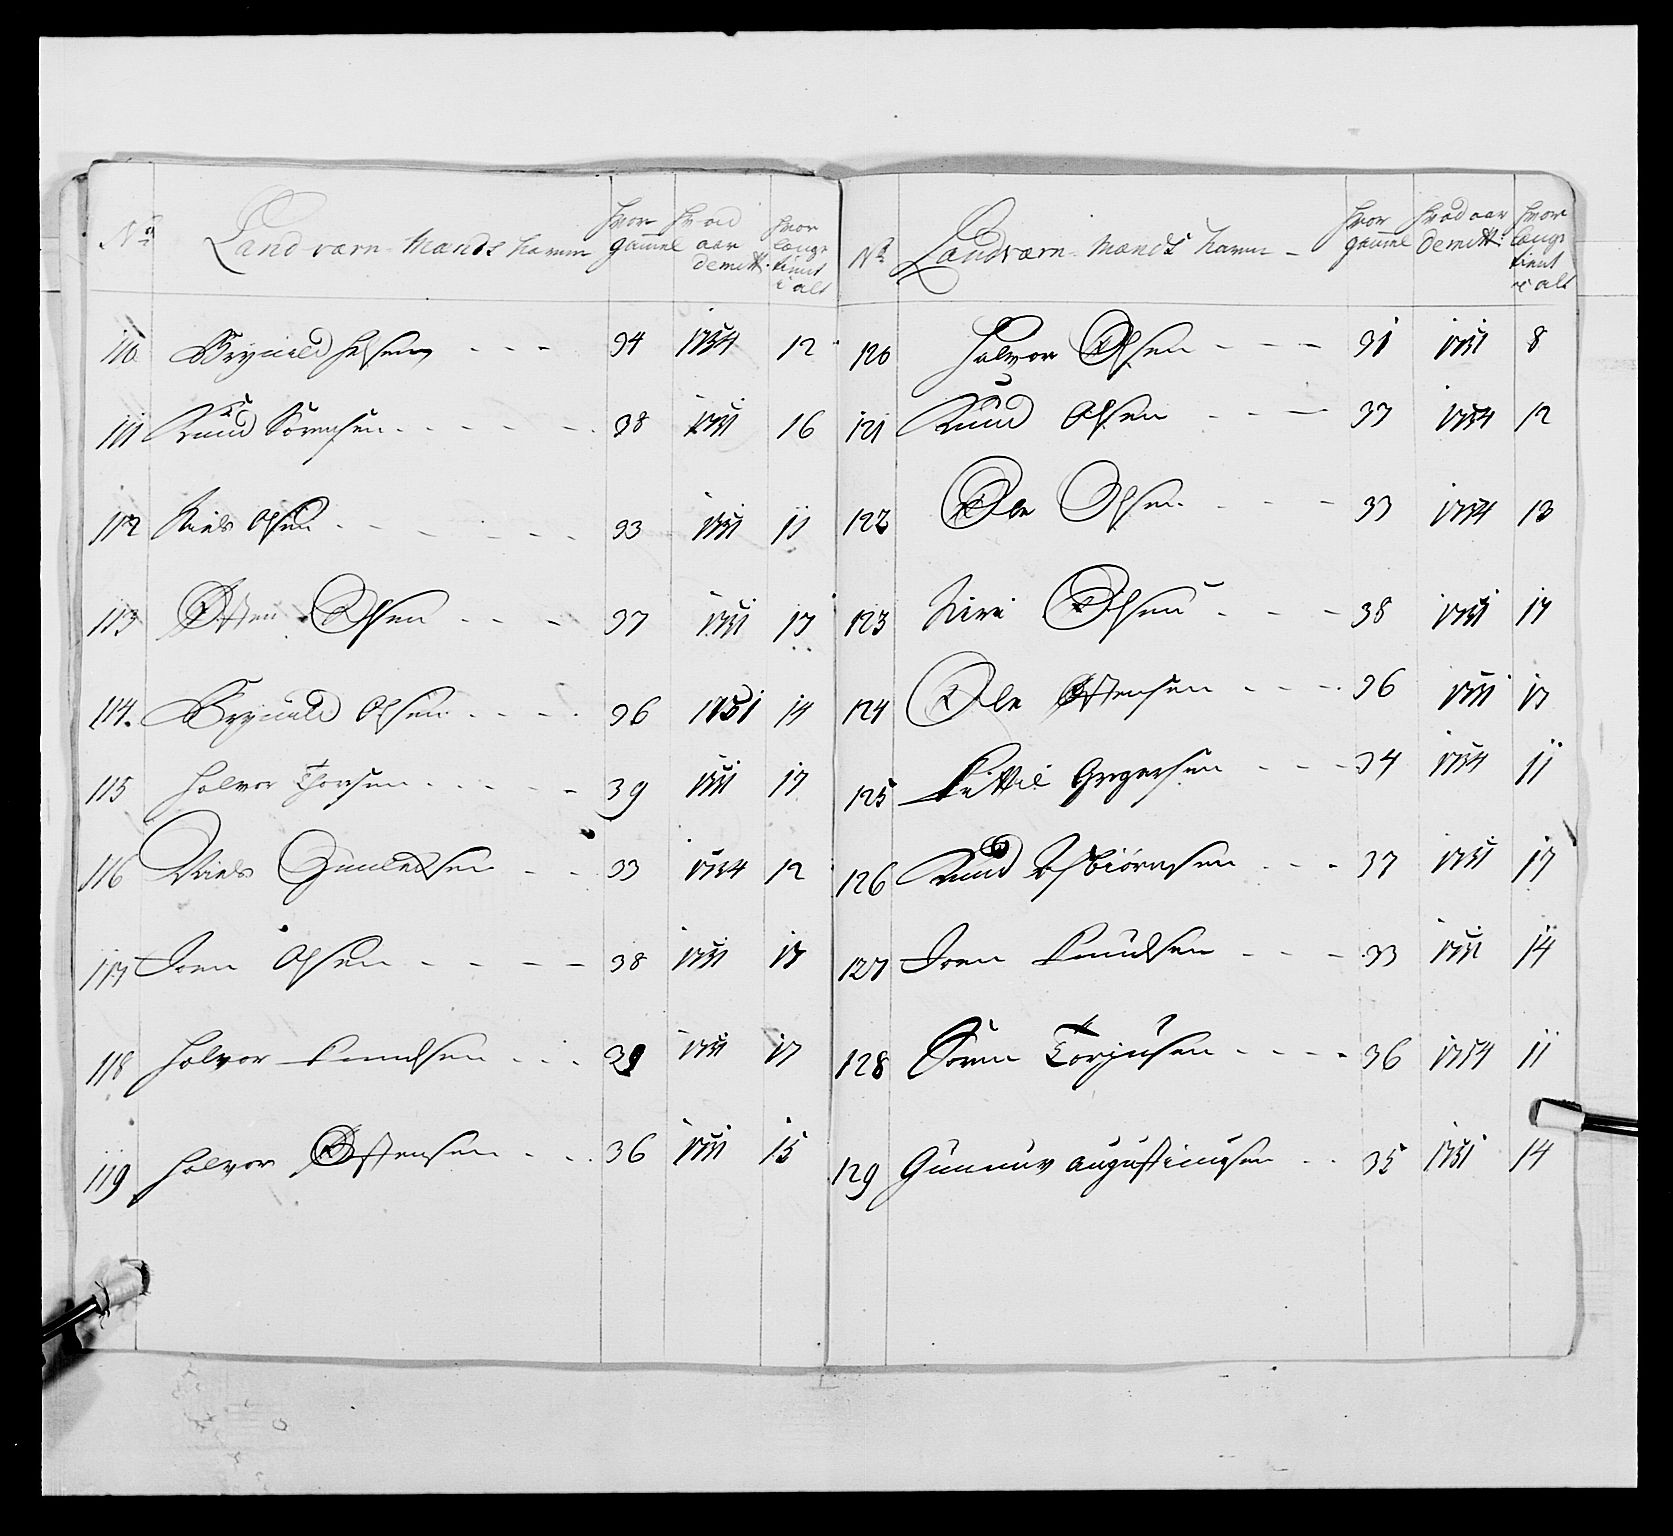 No Landværn Mands Navn Hvor gammel Hvad aar demitt: Hvor længe tient i alt
110 Brynild 34 1754 12
111 Knud Sørensen 38 1751 16
112 Niels Olsen 33 1751 11
113 Østen Olsen 37 1751 17
114. Brynild Olsen 36 1751 14
115 Halvor Thorsen 39 1751 17
116 Niels Gunlechsen 33 1754 12
117 Joen Olsen 38 1751 17
118 Halvor Knudsen 39 1751 17
119 Halvor Østensen 36 1751 15
No Landværn Mands Navn Hvor gammel Hvad aar demitt: Hvor længe tient i alt
120 Halvor Olsen 31 1751 8
121 Knud Olsen 37 1754 12
122 Ole Olsen 33 1754 13
123 Olsen 38 1751 17
124 Ole Østensen 36 1751 17
125 Kittil Gregersen 34 1754 11
126 Knud Asbiørnsen 37 1751 17
127 Joen Knudsen 33 1751 14
128 Søren Torjusen 36 1754 11
129 Gunnuv Augustinusen 35 1751 14